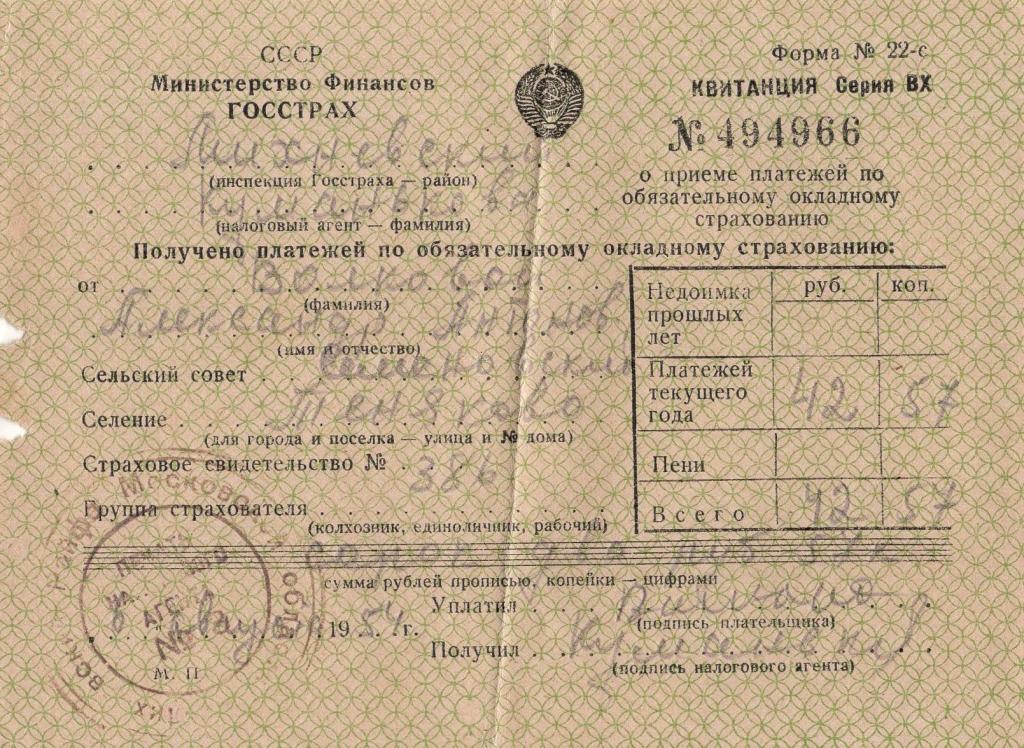 СССР
Министерство Финансов
ГОССТРАХ
Форма № 22-с
КВИТАНЦИЯ Серия ВХ
№ 494966
о приеме платежей по
обязательному окладному
страхованию
Михневский
(инспекция Госстраха — район)
(налоговый агент — фамилия)
Получено платежей по обязательному окладному страхованию:
от Волковой
(фамилия)
Александр Антонов
(имя и отчество)
Сельский совет Семеновский
Селение
(для города и поселка — улица и № дома)
Страховое свидетельство № 386
Группа страхователя
(колхозник, единоличник, рабочий)
руб. коп.
Недоимка
прошлых
лет
Платежей
текущего
года 42 57
Пени
Всего 42 57
сорок два руб 57 к
сумма рублей прописью, копейки — цифрами
Уплатил
(подпись плательщика)
8 августа 1954 г.
Получил
(подпись налогового агента)
М. П